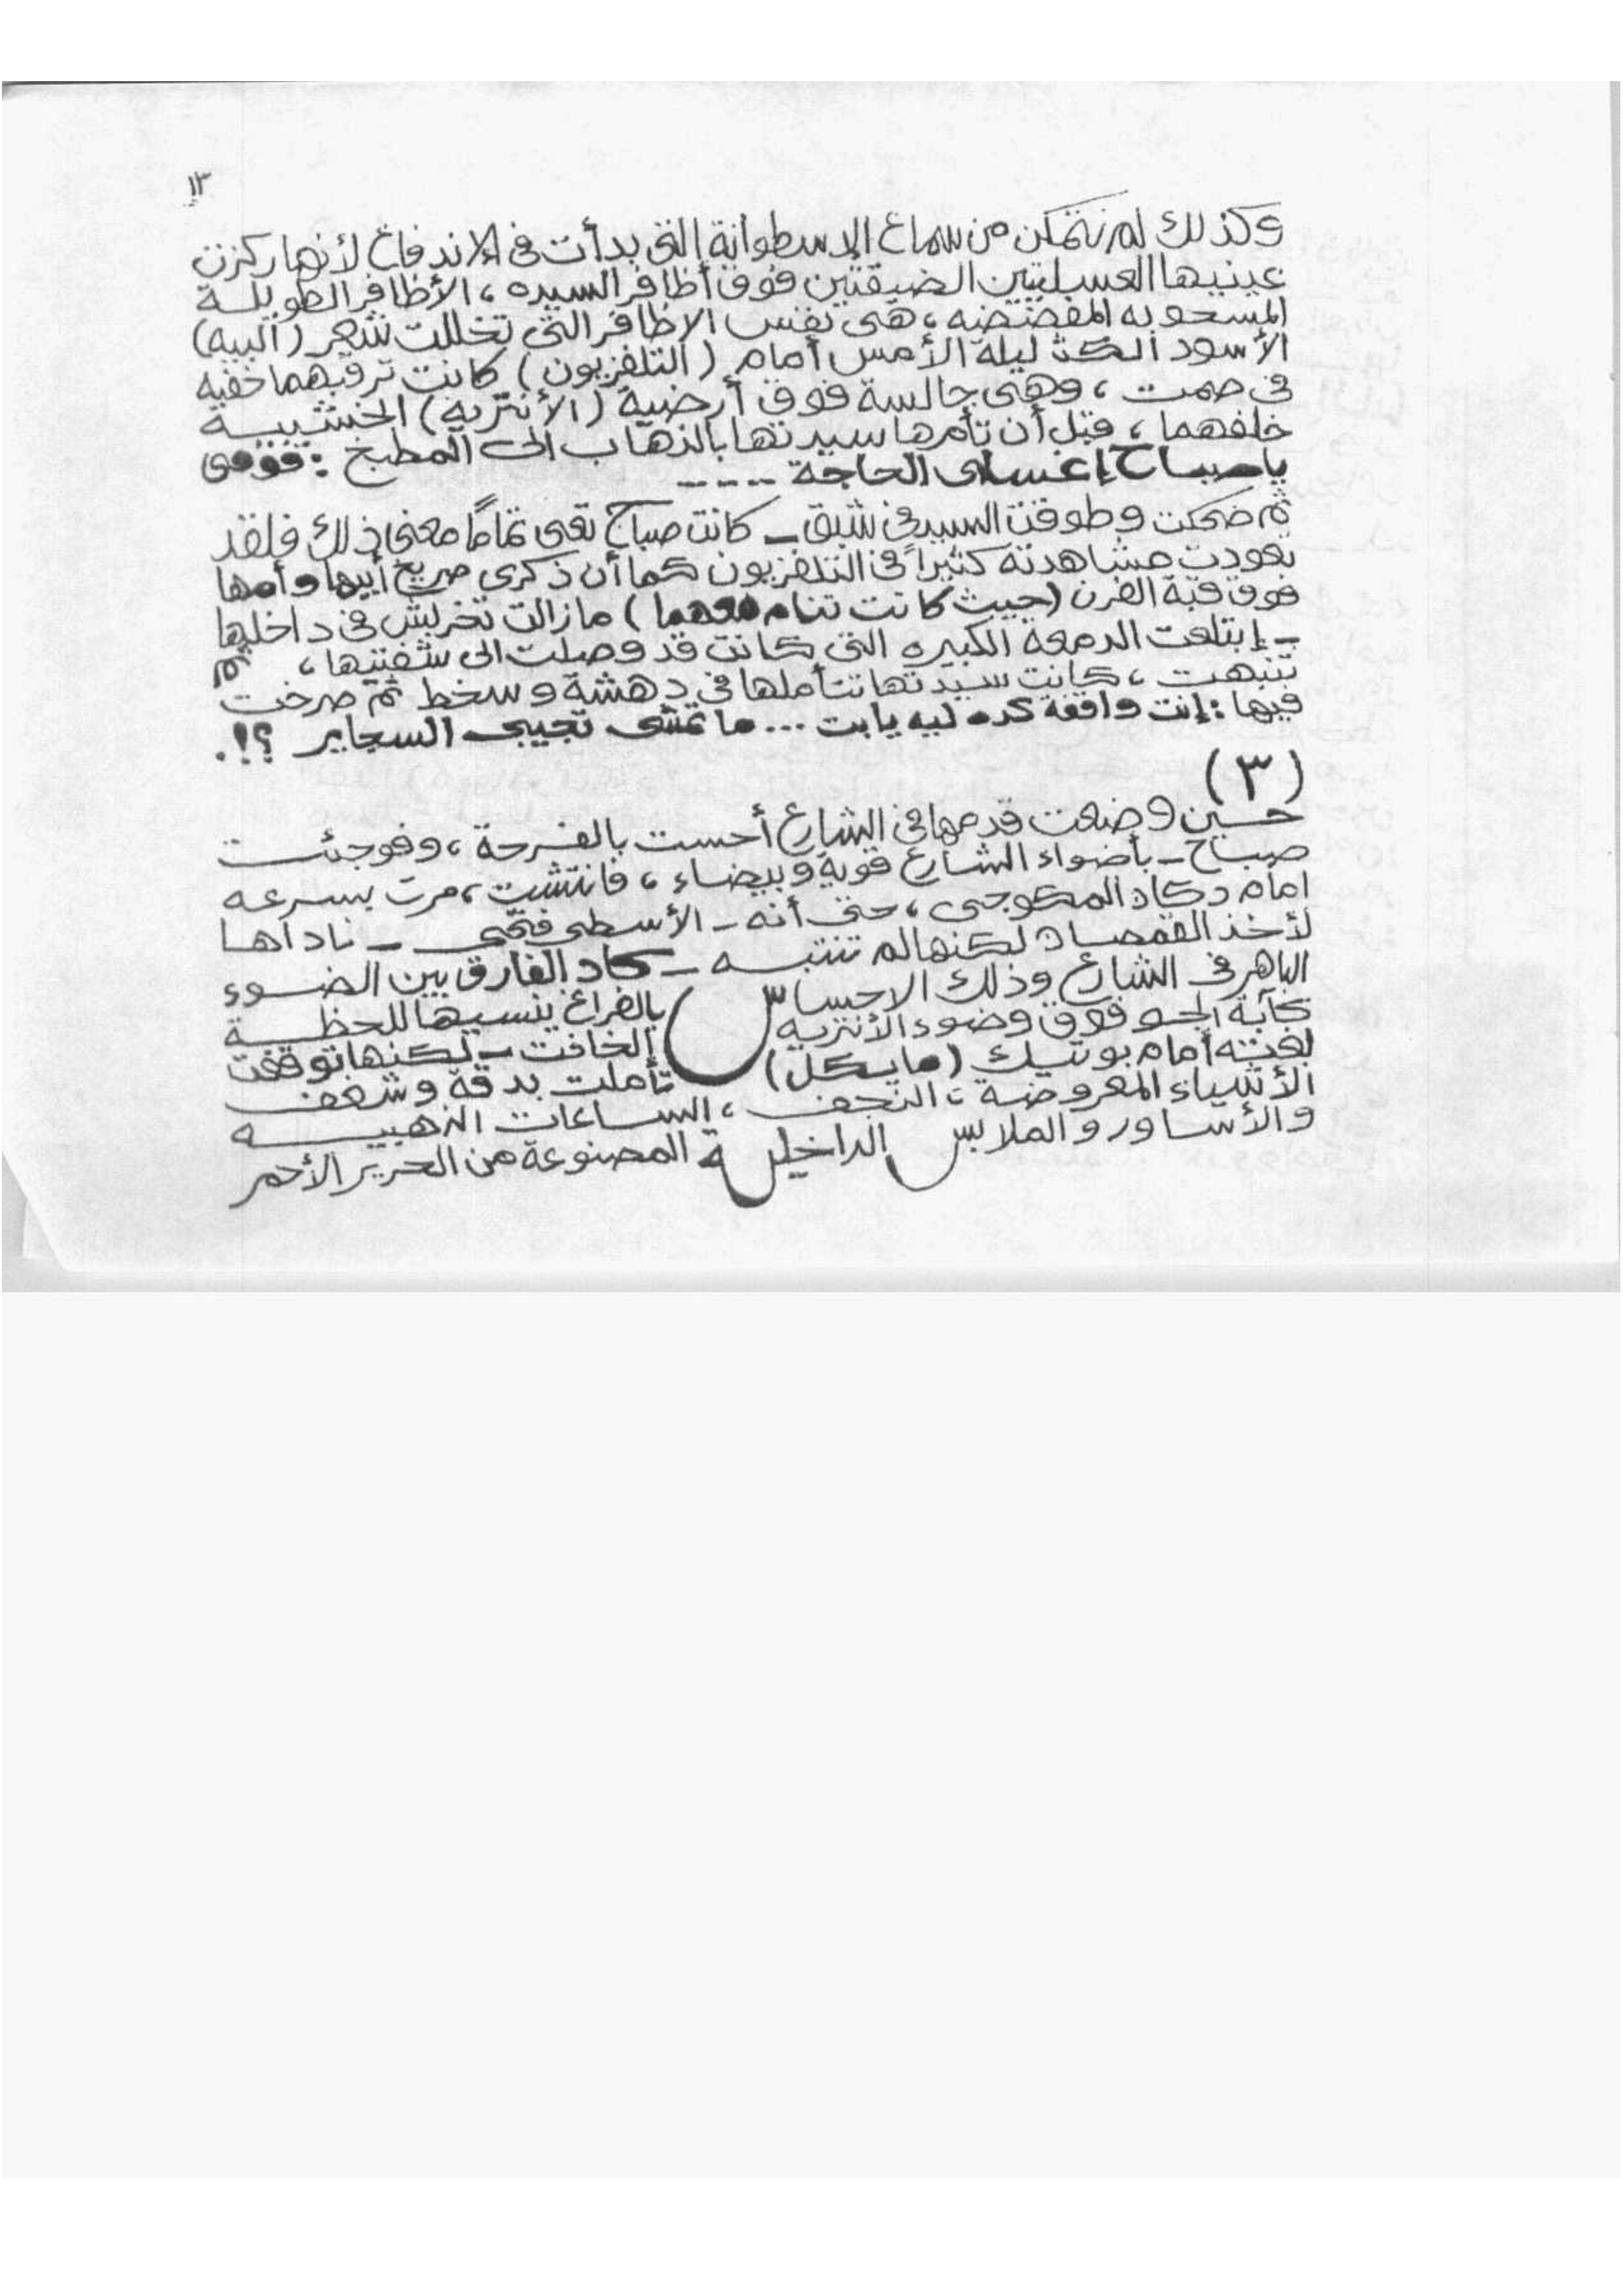 ١٣
وكذلك لم تتمكن من سماع الإسطوانة التى بدأت فى الاندفاع لأنها ركزت
عينيها العسليتين الضيقتين فوق أظافر السيده ، الأظافر الطويلة
المسحوبه المفضضه ، هى نفس الاظافر التى تخللت شعر (البيه)
الأسود الكث ليلة الأمس أمام (التلفزيون) كانت ترقبهما خفيه
فى صمت ، وهى جالسة فوق أرضية (الأنتريه) الخشبيـة
خلفهما ، قبل أن تأمرها سيدتها بالذهاب الى المطبخ : قومى
ياصباح إغسلى الحاجة ----
ثم ضحكت وطوقت السيد فى شبق ــ كانت صباح تعى تمامًا معنى ذلك فلقد
تعودت مشاهدتة كثيراً فى التلفزيون كما أن ذكرى صريخ أبيها وأمها
فوق قبة الفرن (حيث كانت تنام معهما) مازالت تخربش فى داخلها
ــ إبتلعت الدمعة الكبيره التى كانت قد وصلت الى شفتيها ، ثم
تنبهت ، كانت سيدتها تتأملها فى دهشة وسخط ثم صرخت
فيها : إنت واقفة كده ليه يابت ... ما تمشى تجيبى السجاير ؟!.
(٣)
حسين وضعت قدمها فى الشارع أحست بالفرحة ، وفوجئت
صباح ــ بأضواء الشارع قوية وبيضاء ، فانتشت ، مرت بسرعه
امام دكان المكوجى ، حتى أنه ــ الأسطى فتحى ــ ناداها
لأخذ القمصان لكنها لم تنتبه ــ كاد الفارق بين الضوء
الباهر فى الشارع وذلك الاحساس بالفراغ ينسيها للحظة
كآبة الجو فوق وضوء الأنتريه الخافت ــ لكنها توقفت
بغته أمام بوتيك (مايكل) تأملت بدقة وشغف
الأشياء المعروضة ، النجف ، الساعات الذهبيه
والأساور والملابس الداخليه المصنوعة من الحرير الأحمر